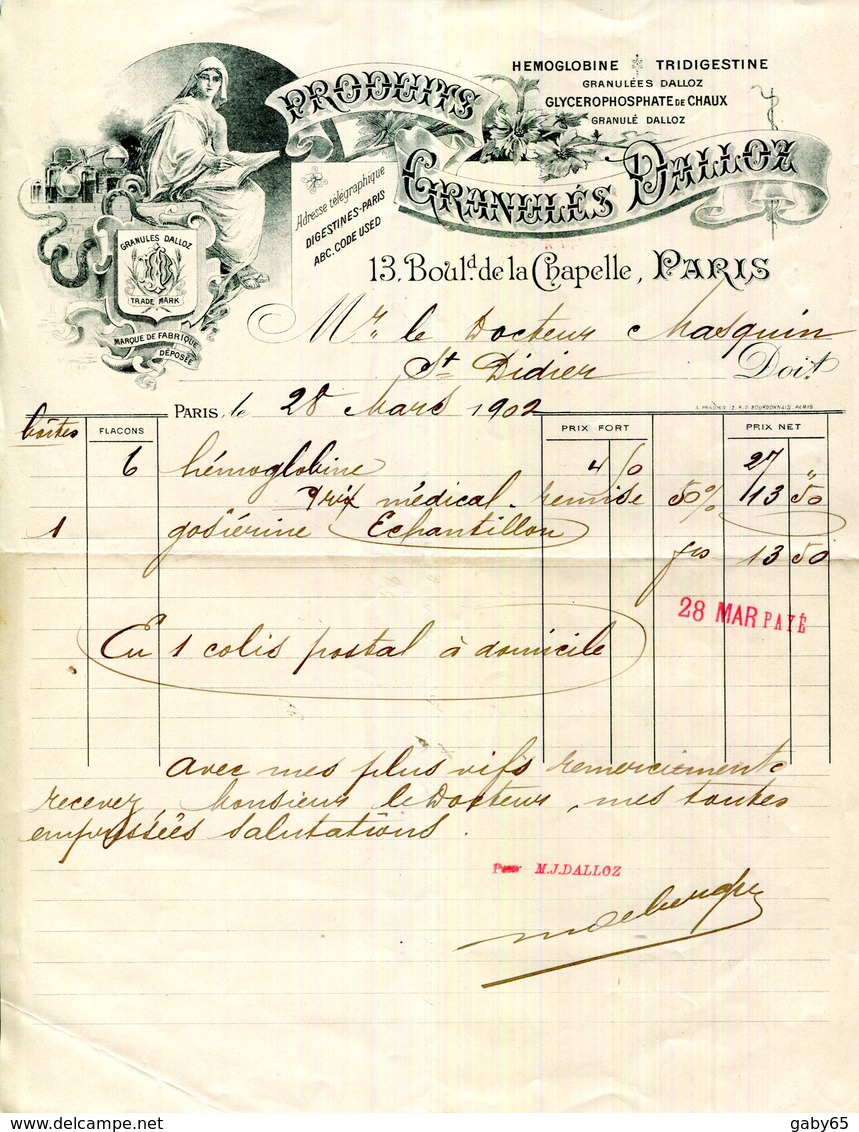 HEMOGLOBINE TRIDIGESTINE
GRANULÉES DALLOZ
GLYCEROPHOSPHATE DE CHAUX
GRANULÉ DALLOZ
PRODUITS
GRANULÉS DALLOZ
Adresse télégraphique
DIGESTINES-PARIS
A B C. CODE USED
GRANULES DALLOZ
TRADE MARK
MARQUE DE FABRIQUE
DÉPOSÉE
13, Boul.d de la Chapelle, PARIS
Mr. le Docteur Masquin
St Didier Doit
PARIS, le 28 Mars 1902
boîtes FLACONS PRIX FORT PRIX NET
6 hémoglobine 27 "
Prix médical. remise 50% 13 50
1 gosiérine Echantillon
frs 13 50
28 MAR PAYÉ
En 1 colis postal à domicile
avec mes plus vifs remerciements
recevez, Monsieur le Docteur, mes toutes
empressées salutations.
Pour M. J. DALLOZ
gaby65